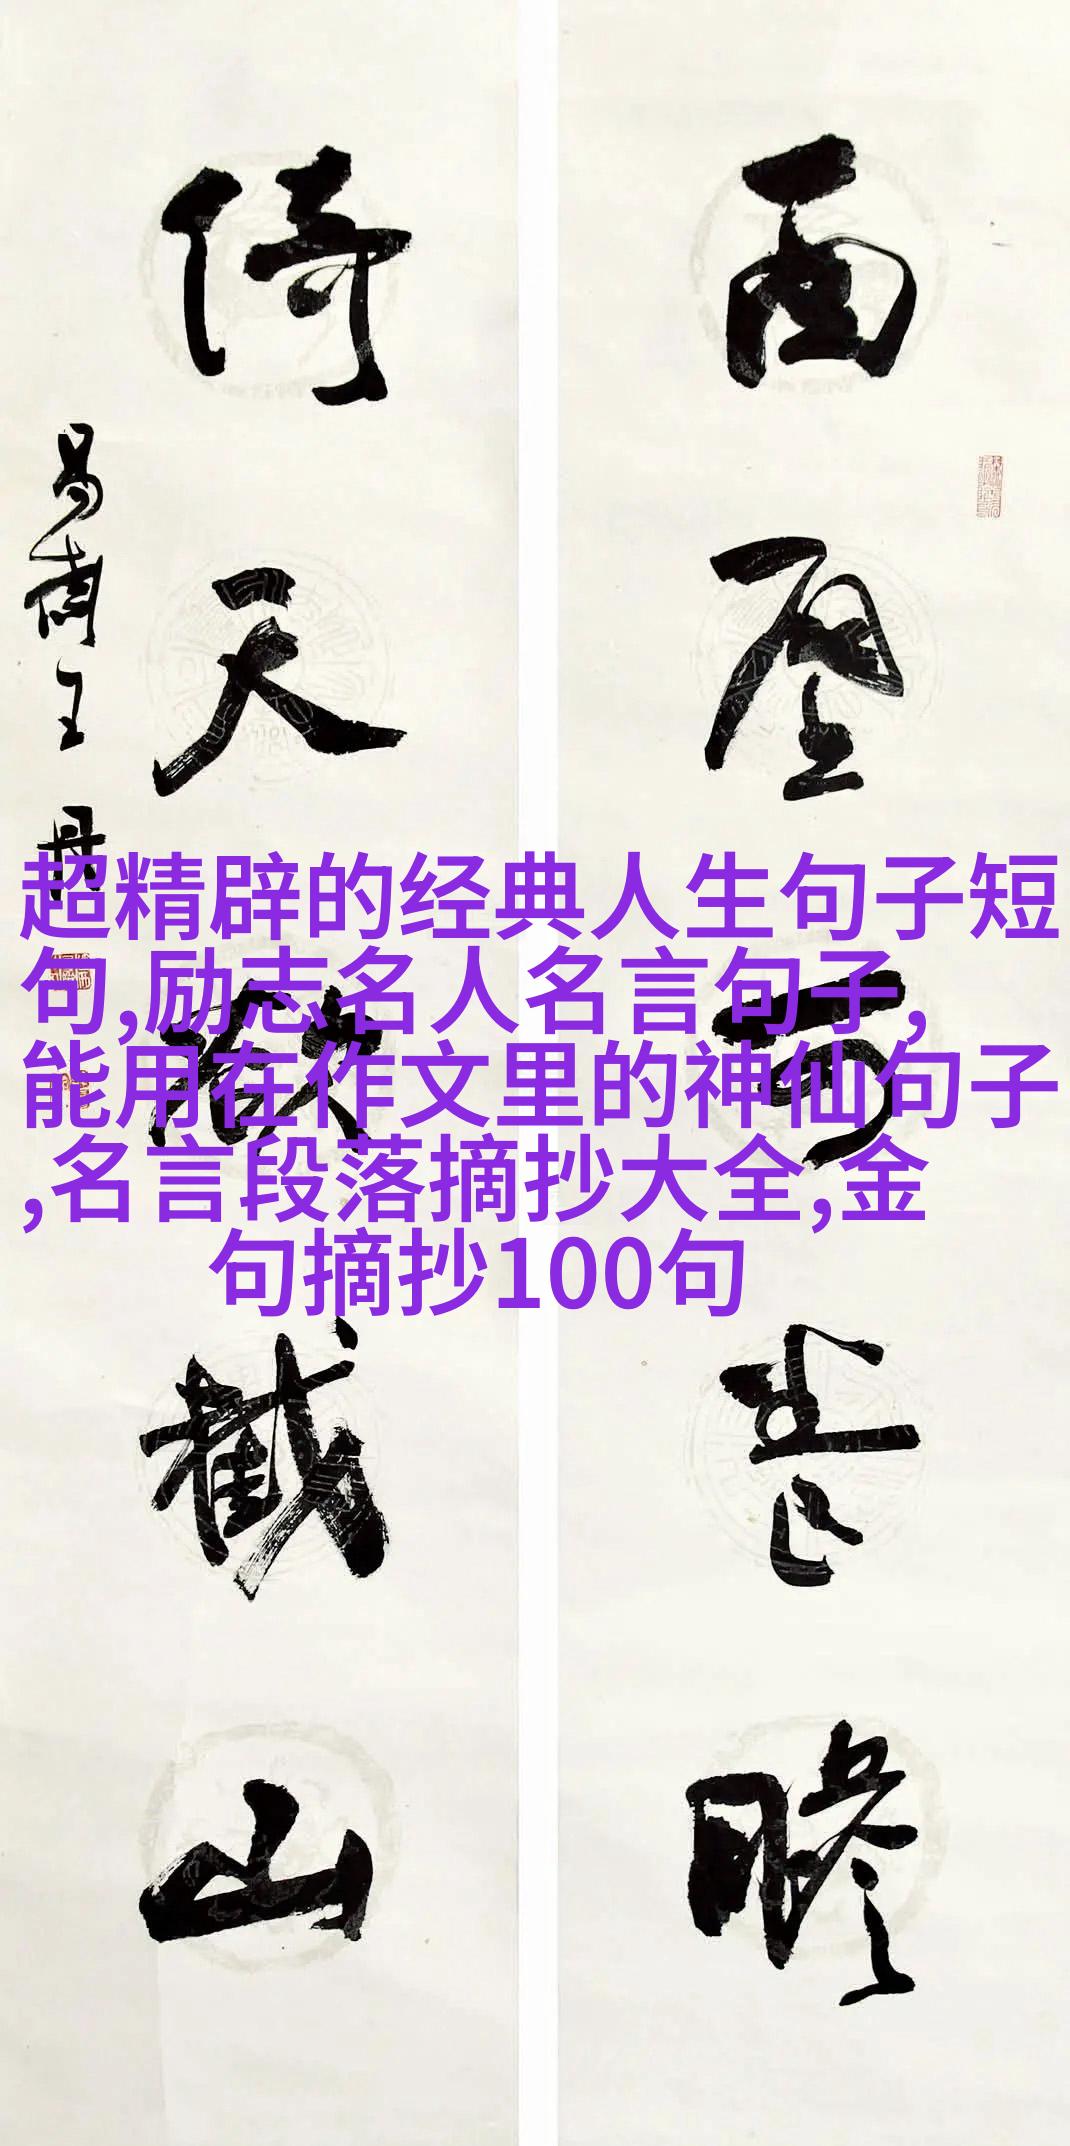 可
瞻
倚
天
截
山
王
丹
超精辟的经典人生句子短
句,励志名人名言句子,
能用在作文里的神仙句子
,名言段落摘抄大全,金
句摘抄100句